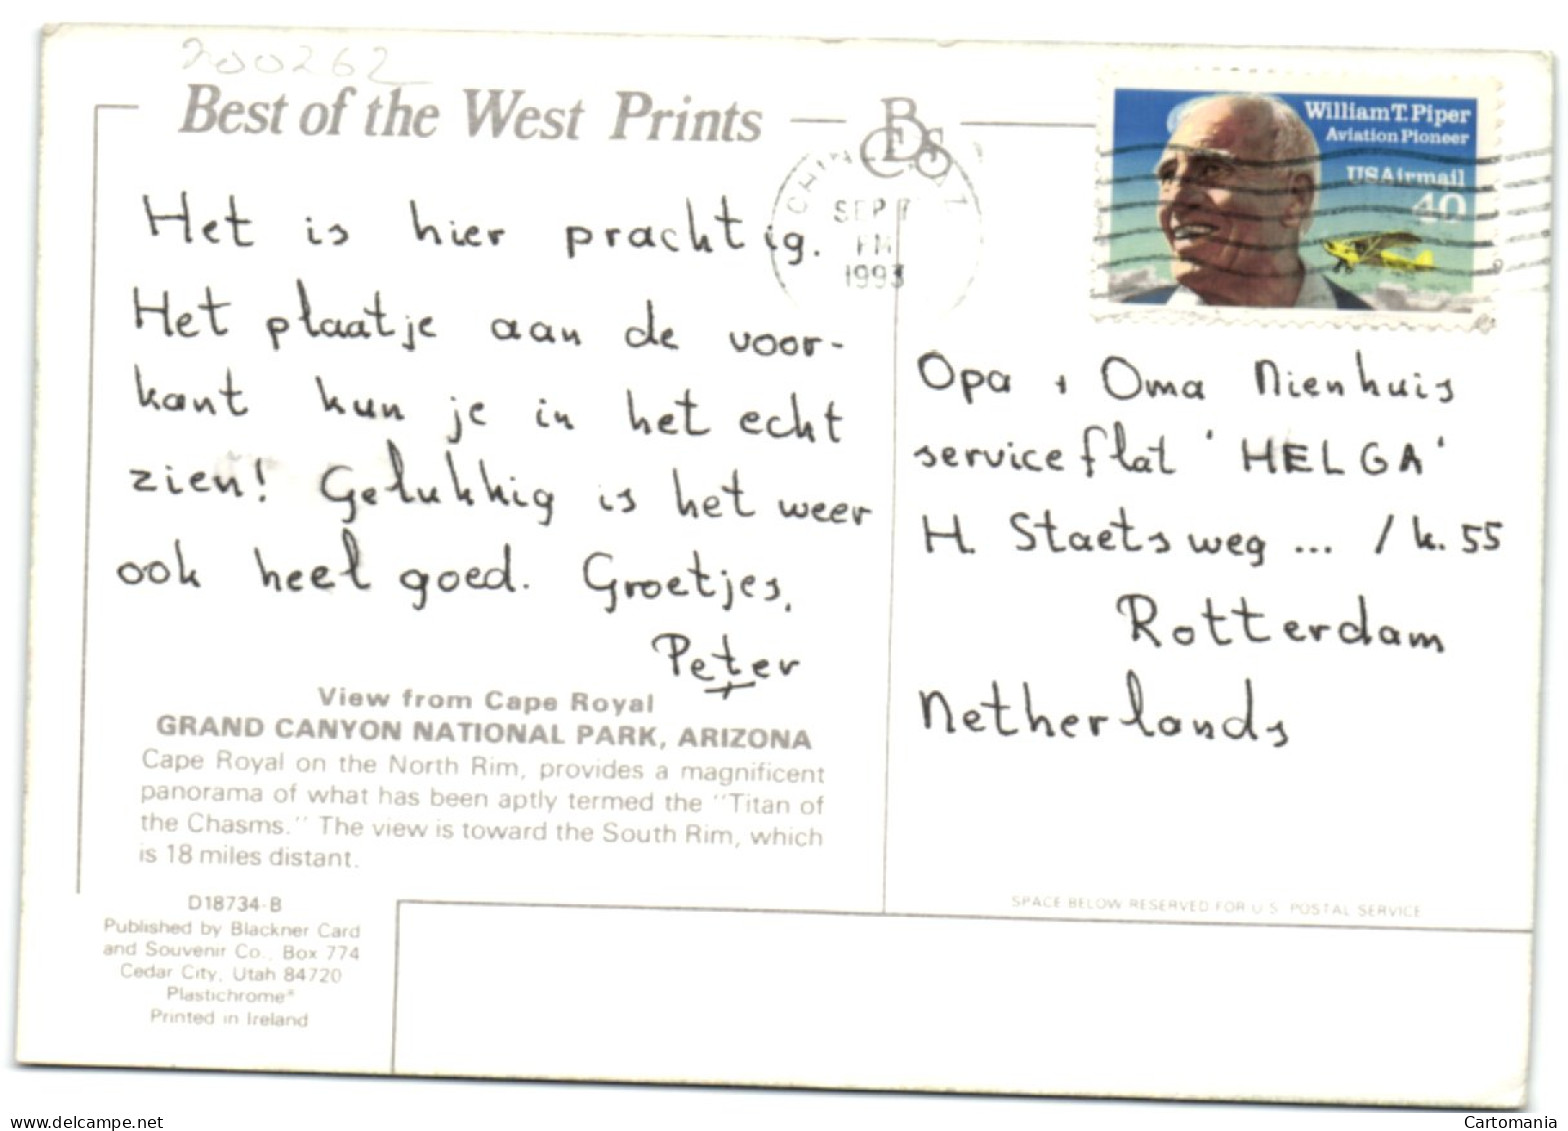 200262
Best of the West Prints
BCS
William T. Piper
Aviation Pioneer
USAirmail
40
SEP 7
PM
1993
Het is hier prachtig.
Het plaatje aan de voor-
kant kun je in het echt
zien! Gelukkig is het weer
ook heel goed. Groetjes,
Peter
View from Cape Royal
GRAND CANYON NATIONAL PARK, ARIZONA
Cape Royal on the North Rim, provides a magnificent
panorama of what has been aptly termed the "Titan of
the Chasms." The view is toward the South Rim, which
is 18 miles distant.
D18734-B
Published by Blackner Card
and Souvenir Co., Box 774
Cedar City, Utah 84720
Plastichrome®
Printed in Ireland
Opa + Oma Nienhuis
serviceflat 'HELGA'
H. Staetsweg ... / k. 55
Rotterdam
Netherlands
SPACE BELOW RESERVED FOR U.S. POSTAL SERVICE
delcampe.net
Cartomania